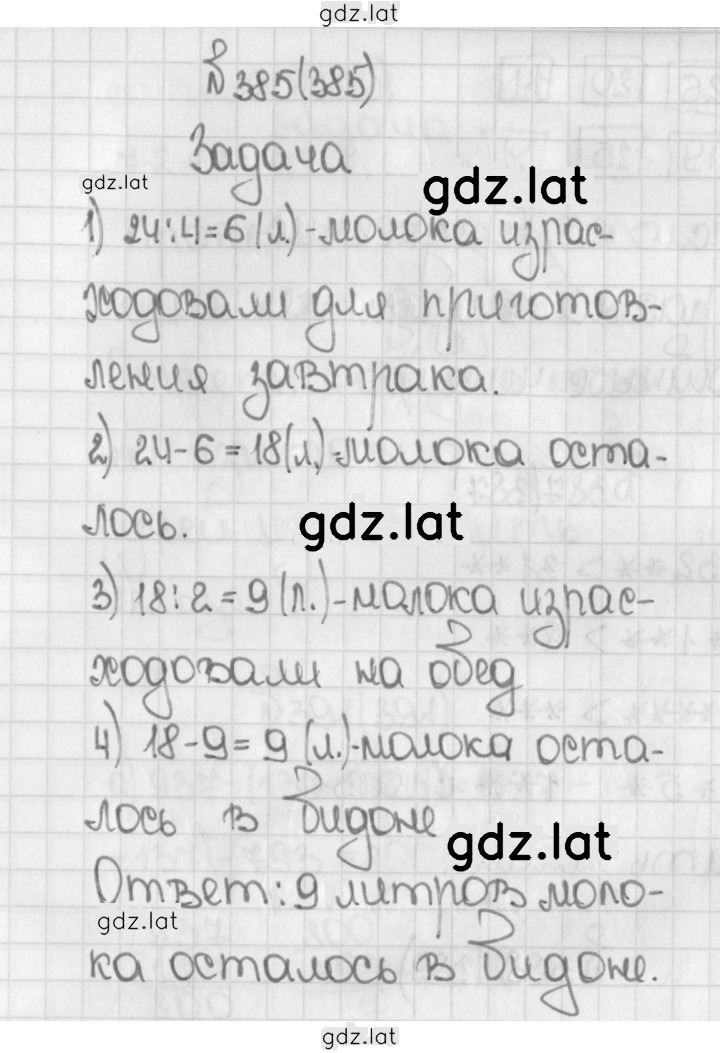 gdz.lat
№385(385)
Задача
gdz.lat
gdz.lat
1) 24:4=6(л.)-молока израс-
ходовали для приготов-
ления завтрака.
2) 24-6=18(л.)-молока оста-
лось.
gdz.lat
3) 18:2=9(л.)-молока израс-
ходовали на обед
4) 18-9=9(л.)-молока оста-
лось в бидоне
gdz.lat
Ответ: 9 литров моло-
gdz.lat
ка осталось в бидоне.
gdz.lat